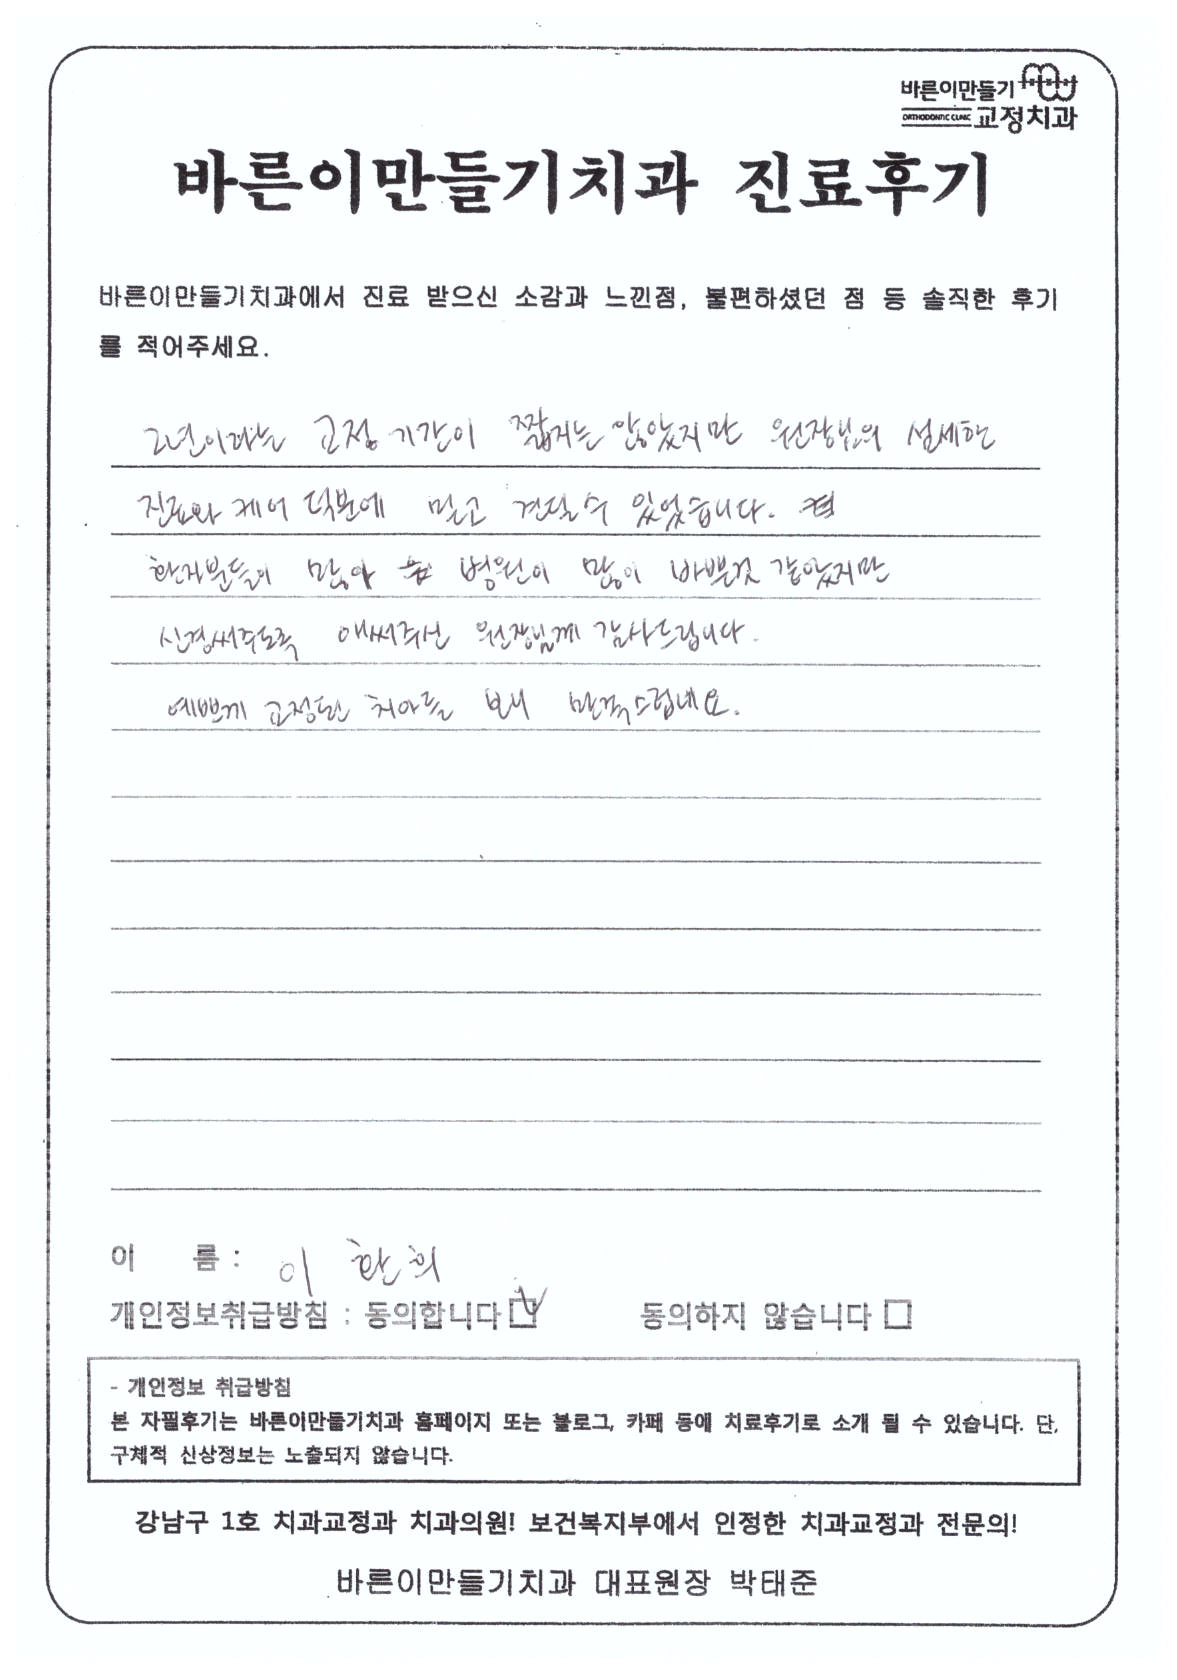 바른이만들기
ORTHODONTIC CLINIC 교정치과
바른이만들기치과 진료후기
바른이만들기치과에서 진료 받으신 소감과 느낀점, 불편하셨던 점 등 솔직한 후기
를 적어주세요.
2년이라는 교정 기간이 짧지는 않았지만 원장님의 섬세한
진료와 케어 덕분에 믿고 견딜 수 있었습니다.
환자분들이 많아 병원이 많이 바쁜것 같았지만
신경써주도록 애써주신 원장님께 감사드립니다.
예쁘게 교정된 치아를 보니 만족스럽네요.
이 름 : 이 환희
개인정보취급방침 : 동의합니다 동의하지 않습니다
- 개인정보 취급방침
본 자필후기는 바른이만들기치과 홈페이지 또는 블로그, 카페 등에 치료후기로 소개 될 수 있습니다. 단,
구체적 신상정보는 노출되지 않습니다.
강남구 1호 치과교정과 치과의원! 보건복지부에서 인정한 치과교정과 전문의!
바른이만들기치과 대표원장 박태준